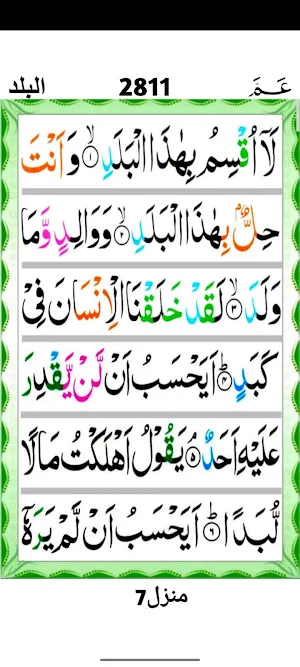 البلد 2811 عَـمَّ
لَاۤ اُقْسِمُ بِهٰذَا الْبَلَدِ ۙ‏﴿۱﴾ وَ اَنْتَ
حِلٌّۢ بِهٰذَا الْبَلَدِ ۙ‏﴿۲﴾ وَ وَالِدٍ وَّ مَا
وَلَدَ ۙ‏﴿۳﴾ لَقَدْ خَلَقْنَا الْاِنْسَانَ فِیْ
كَبَدٍ ؕ‏﴿۴﴾ اَیَحْسَبُ اَنْ لَّنْ یَّقْدِرَ
عَلَیْهِ اَحَدٌ ۘ‏﴿۵﴾ یَقُوْلُ اَهْلَكْتُ مَالًا
لُّبَدًا ؕ‏﴿۶﴾ اَیَحْسَبُ اَنْ لَّمْ یَرَهٗۤ
منزل7